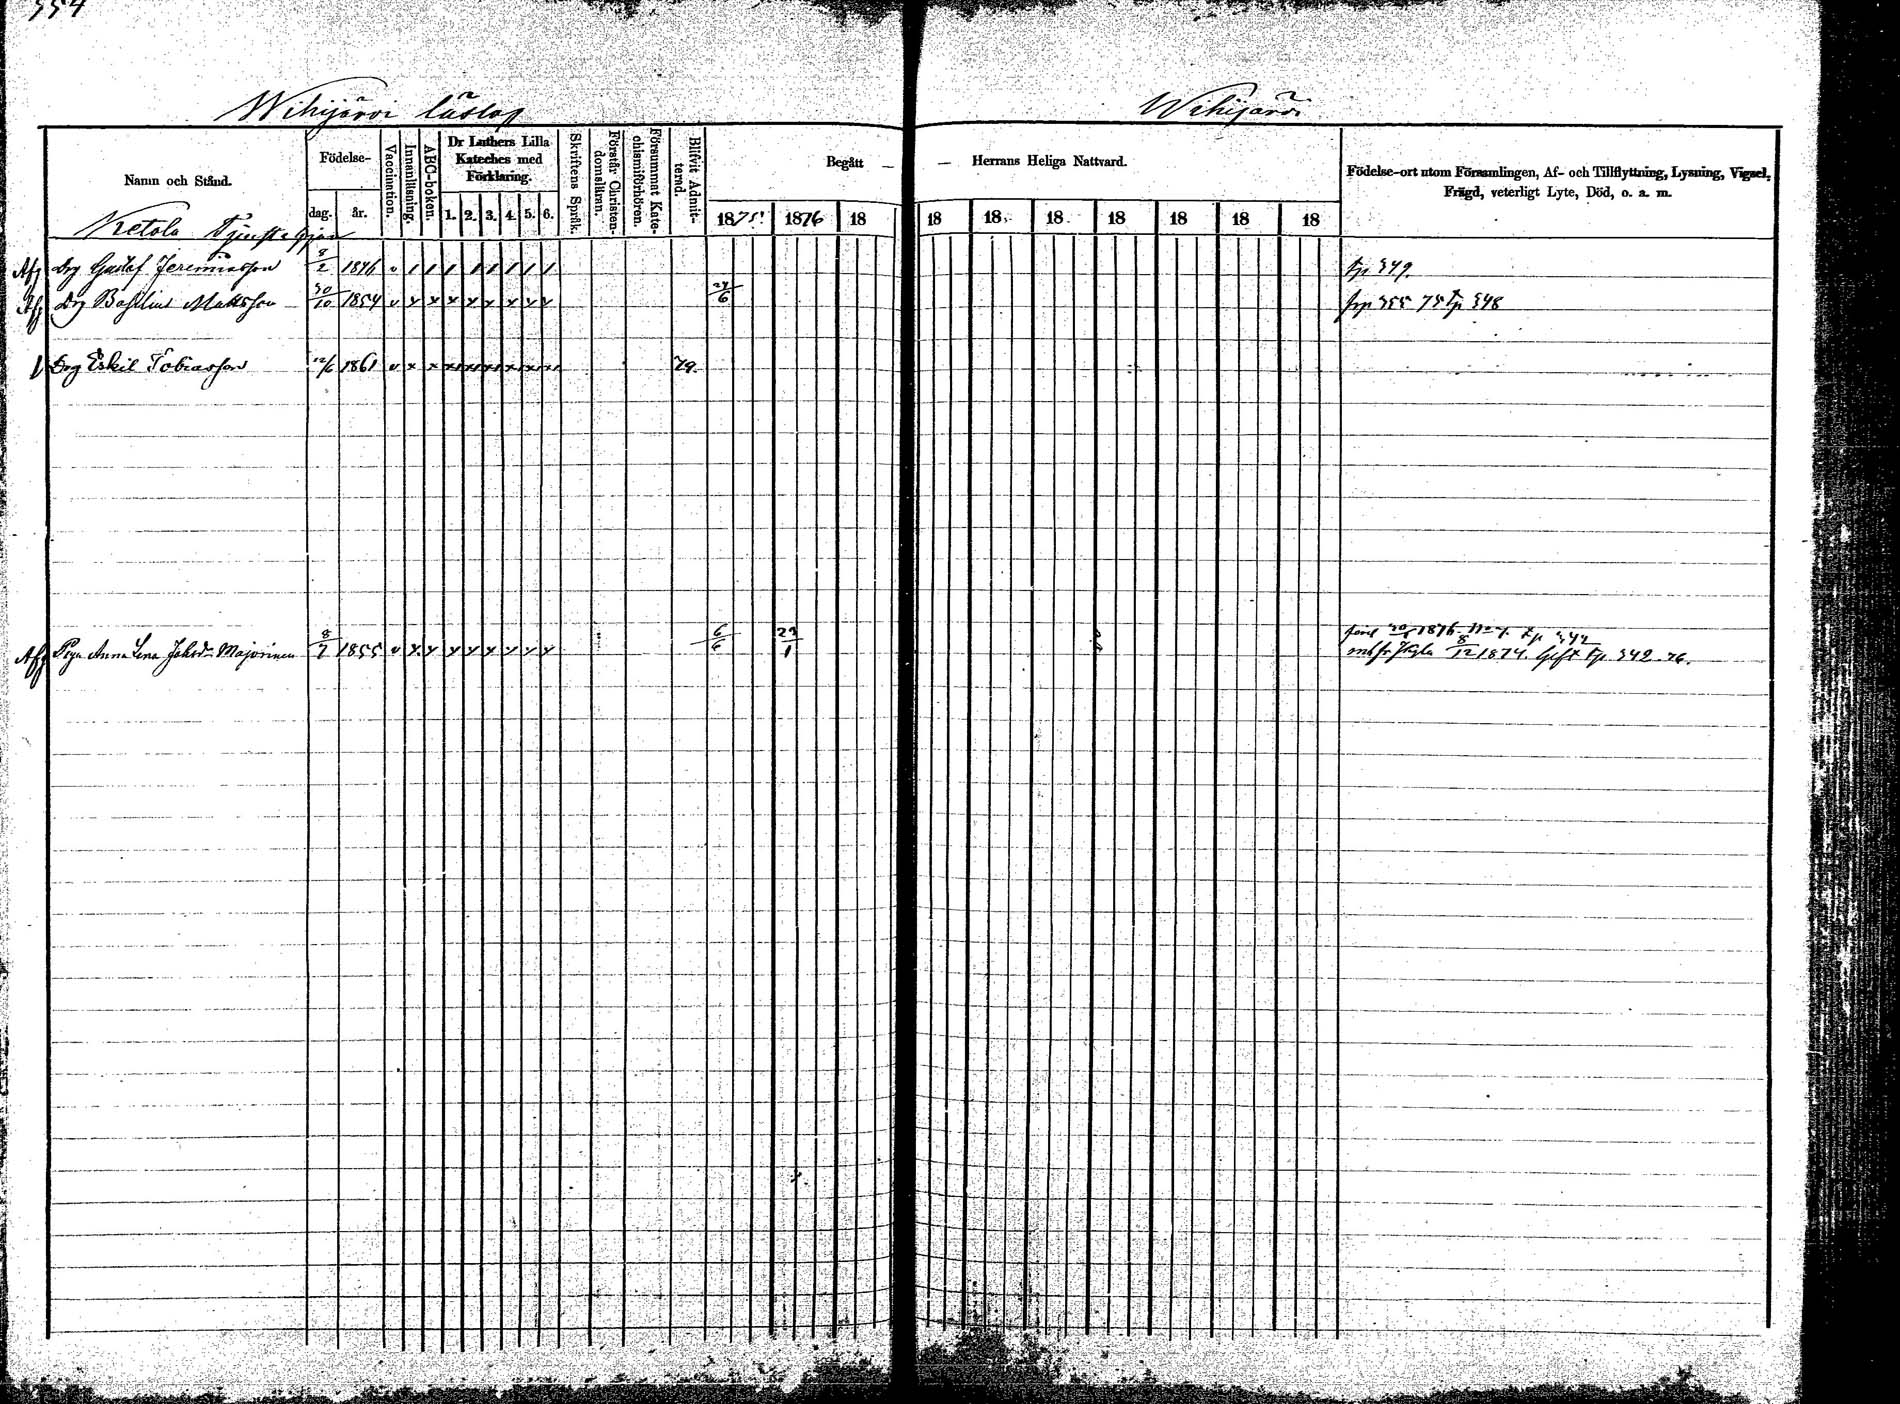 354
Wihijärvi
Wihijärvi
Namn och Stånd.
Födelse-
dag. år.
Vaccination.
Innanläsning.
ABC-boken.
Dr Luthers Lilla Kateches med Förklaring.
1. 2. 3. 4. 5. 6.
Skriftens Språk.
Förstår Christendomsläran.
Försummat Katechismiförhören.
Blifvit Admitterad.
Begått — — Herrans Heliga Nattvard.
1875 1876 18 18 18 18 18 18 18 18
Födelse-ort utom Församlingen, Af- och Tillflyttning, Lysning, Vigsel,
Frägd, veterligt Lyte, Död, o. a. m.
Ketola
Drg Gustaf Jeremiasson 1846 v / / / / / / / / 349
Drg Basilius Mattsson 30/10 1854 v x x x x x x x x 24/6 355 75 348
Drg Eskil Tobiasson 12/6 1861 v x x x x x x x x 79.
Anna Lena Johsdr Majorinen 8/7 1855 v x x x x x x x x 6/6 23/1 1876 342
8/12 1874. Gift 342-76.